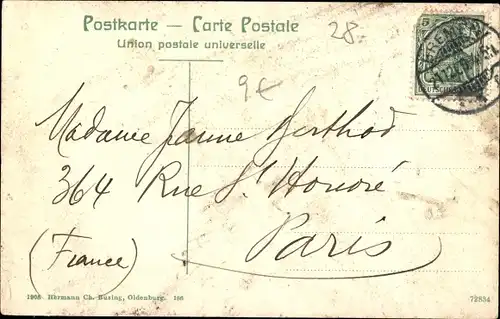 Postkarte — Carte Postale
Union postale universelle
28.
9€
5
Madame Janne Berthod
364 Rue St Honoré
Paris
(France)
1905 Hermann Ch. Büsing, Oldenburg. 106
72834